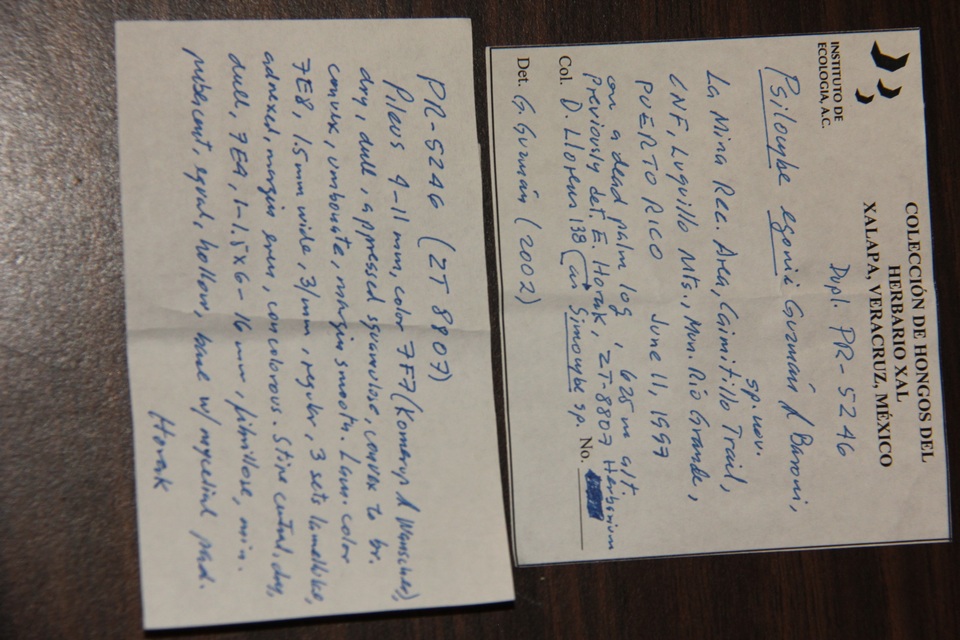 INSTITUTO DE
ECOLOGIA, A.C.
COLECCIÓN DE HONGOS DEL
HERBARIO XAL
XALAPA, VERACRUZ, MÉXICO
Dupl. PR-5246
Psilocybe egonii Guzmán & Baroni,
sp. nov.
La Mina Rec. Area, Caimitillo Trail,
CNF, Luquillo Mts., Mun. Rio Grande,
PUERTO RICO June 11, 1997
on a dead palm log, 625 m alt.
Previously det. E. Horak, ZT-8807 Herbarium
Col. D. Llorens 138 (as Simocybe sp. No.
Det. G. Guzmán (2002)
PR-5246 (ZT 8807)
Pileus 4-11 mm, color 7F7 (Kornerup & Wanscher),
dry, dull, appressed squamulose, convex to br.
convex, umbonate, margin smooth. Lam. color
7E8, 1.5 mm wide, 3/mm, regular, 3 sets lamellulae,
adnexed, margin even, concolorous. Stipe central, dry,
dull, 7E4, 1-1.5x6-16 mm, fibrillose, min.
pubescent, equal, hollow, base w/ mycelial pad.
Horak